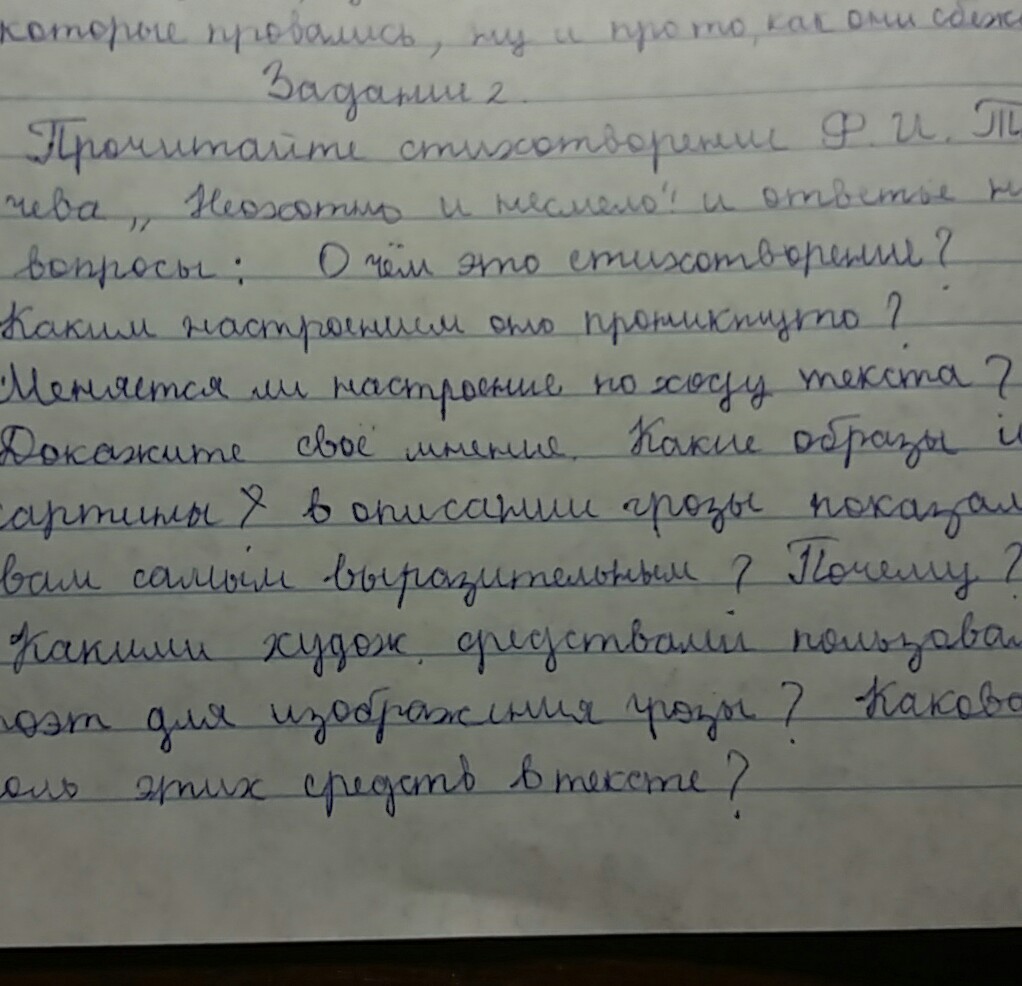 которые провались, ну и про то, как они сбеж
Задание 2.
Прочитайте стихотворение Ф. И. Тю
чева „Неохотно и несмело" и ответье н
вопросы: О чём это стихотворение?
Каким настроением оно проникнуто?
Меняется ли настроение по ходу текста?
Докажите своё мнение. Какие образы и
картины в описании грозы показал
вам самым выразительным? Почему?
Какими худож. средствами пользовал
поэт для изображения грозы? Какова
оль этих средств в тексте?